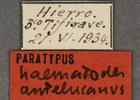 Hierro.
Bco Tifirave.
21. VI. 1934.
PARATYPUS
haematodes
antelucanus